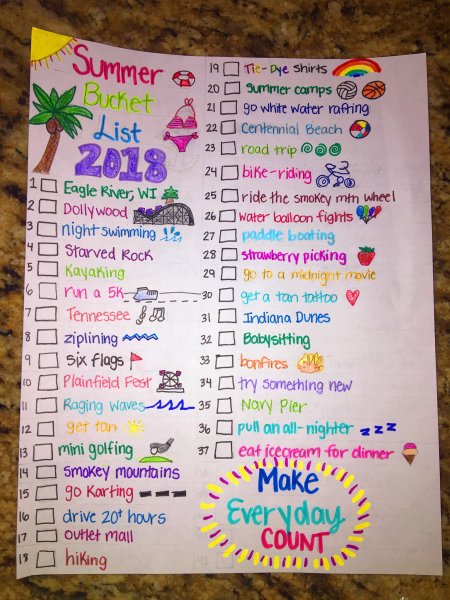 Summer
Bucket
List
2018
1 Eagle River, WI
2 Dollywood
3 night swimming
4 Starved Rock
5 Kayaking
6 run a 5K
7 Tennessee
8 ziplining
9 Six flags
10 Plainfield Fest
11 Raging Waves
12 get tan
13 mini golfing
14 Smokey mountains
15 go Karting
16 drive 20+ hours
17 outlet mall
18 hiking
19 Tie-Dye shirts
20 Summer camps
21 go white water rafting
22 Centennial Beach
23 road trip
24 bike-riding
25 ride the smokey mtn wheel
26 water balloon fights
27 paddle boating
28 strawberry picking
29 go to a midnight movie
30 get a tan tattoo
31 Indiana Dunes
32 Babysitting
33 bonfires
34 try something new
35 Navy Pier
36 pull an all-nighter z z z
37 eat icecream for dinner
Make
Everyday
COUNT